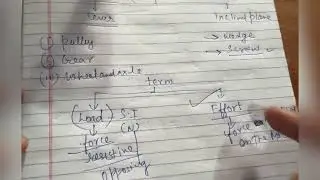 Lever Inclined plane
(i) pulley → wedge
(ii) Gear → screw
(iii) Wheel and axle
term
(Load) S.I Effort
force (N) force
Resistive
opposing